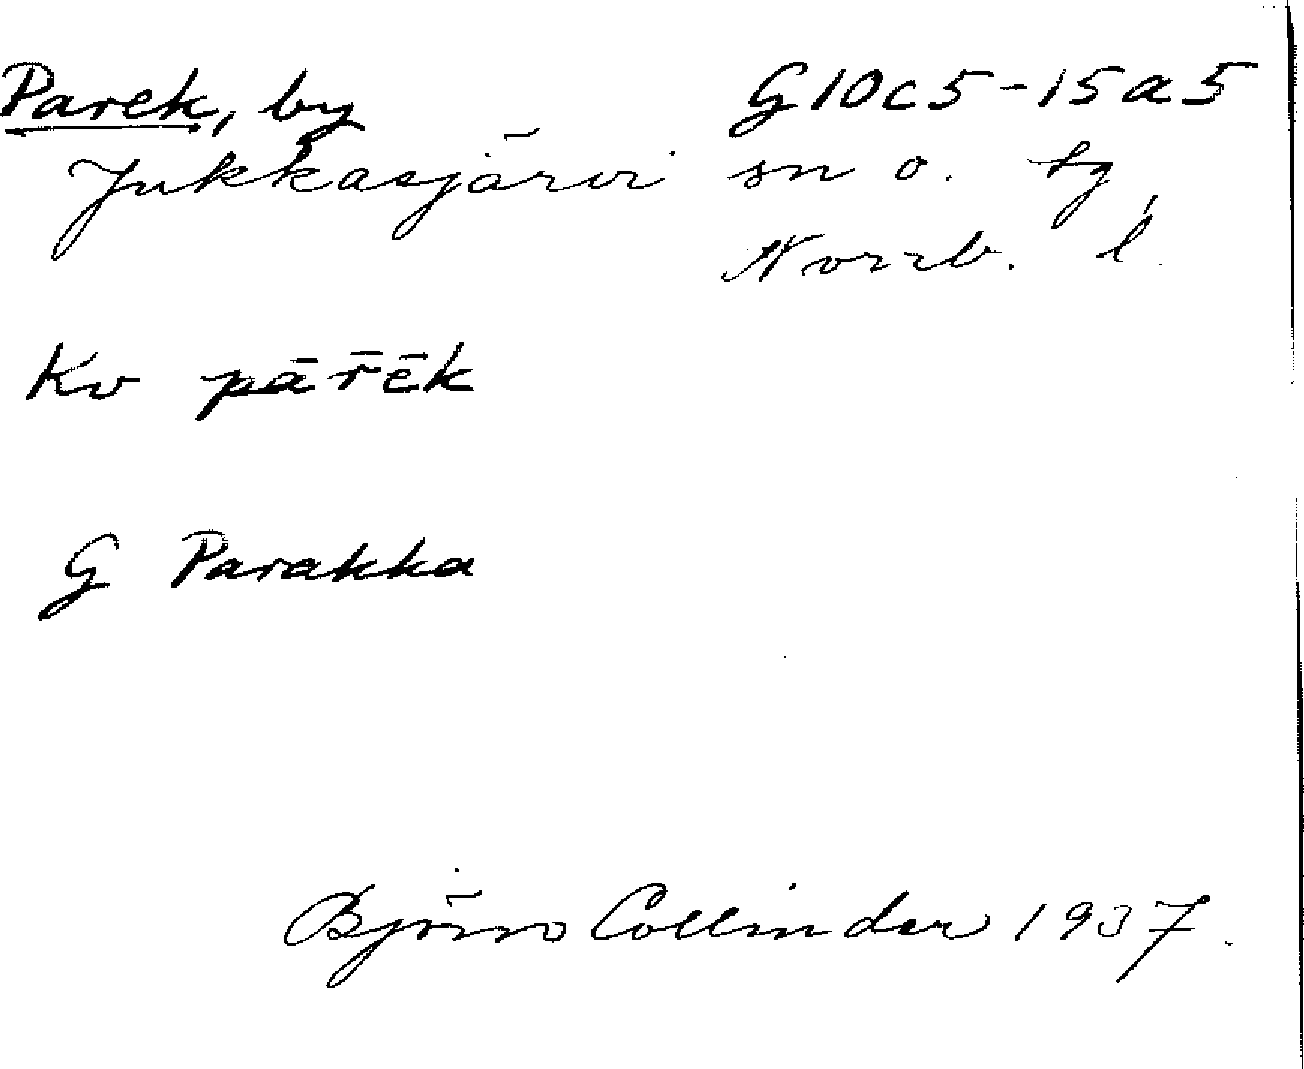 Parek, by G10c5-15a5
Jukkasjärvi sn o. tg
Norrb. l.
Kv pārēk
G Parakka
Björn Collinder 1937.